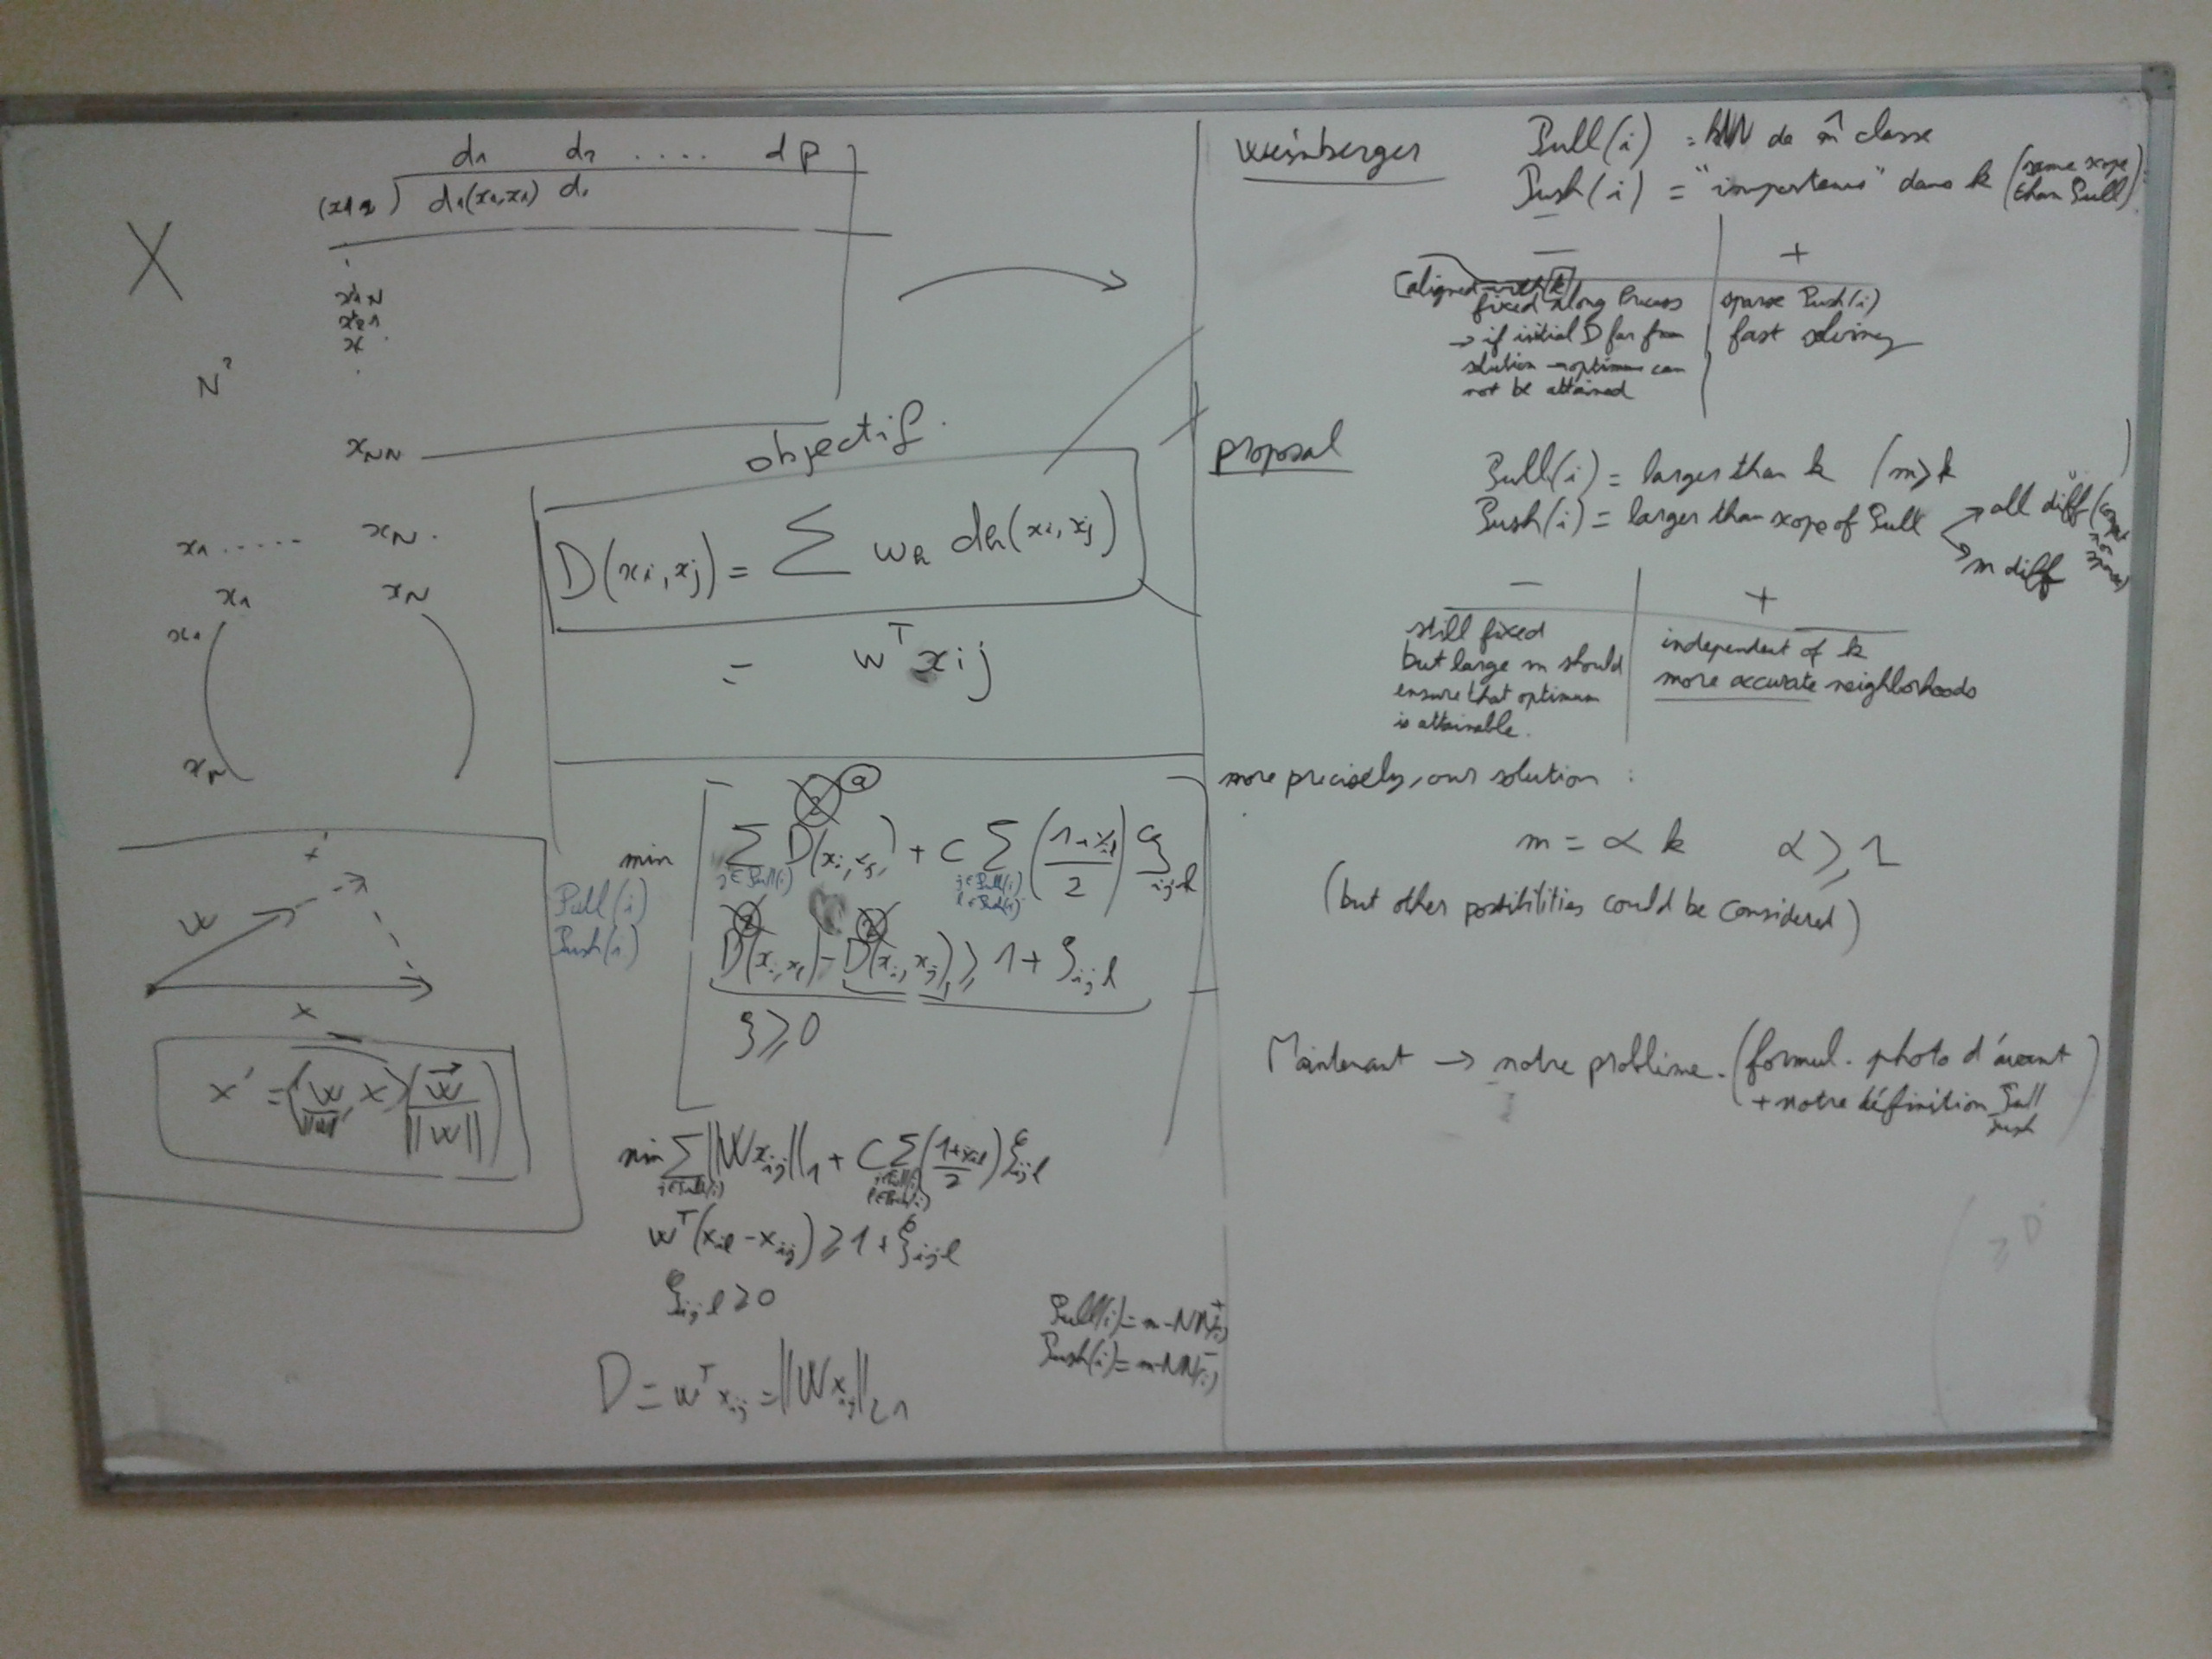 d1 d2 .... dp
(x12) d1(x1,x1) d1
X
x1N
x21
x
N²
xNN
objectif.
D(xi,xj) = Σ wh dh(xi,xj)
= w^T xij
x1 ..... xN.
x1 xN
x1
xN
x'
w
x
x' = (w/||w||, x) (w/||w||)
Pull(i)
Push(i)
min Σ D(xi,xj) + C Σ ((1+yil)/2) ξijl
j∈Pull(i) j∈Pull(i)
l∈Push(i)
D(xi,xl) - D(xi,xj) ≥ 1 + ξijl
ξ ≥ 0
min Σ ||Wxij||1 + C Σ ((1+yil)/2) ξijl
j∈Pull(i) j∈Pull(i)
l∈Push(i)
w^T(xil - xij) ≥ 1 + ξijl
ξijl ≥ 0
D = w^T xij = ||Wxij||L1
Pull(i) = m-NN+(i)
Push(i) = m-NN-(i)
Weinberger
Pull(i) = kNN de m̂ classe
Push(i) = "imposteurs" dans k (same scope
than Pull)
- +
(aligned with k)
fixed along Process
→ if initial D far from
solution → optimum can
not be attained
sparse Push(i)
fast solving
proposal
Pull(i) = larger than k (m>k
Push(i) = larger than scope of Pull
all diff
m diff
- +
still fixed
but large m should
ensure that optimum
is attainable.
independent of k
more accurate neighborhoods
more precisely, our solution :
m = α k α ≥ 1
(but other possibilities could be considered)
Maintenant → notre problème. (formul. photo d'avant
+ notre définition Pull
Push)
≥ D